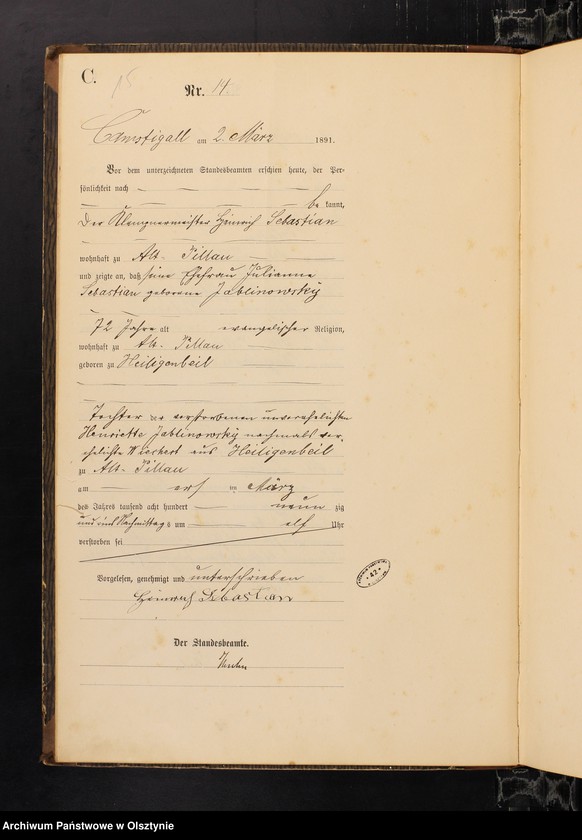 C.
15
Nr. 14.
Camstigall am 2. März 1891.
Vor dem unterzeichneten Standesbeamten erschien heute, der Per-
sönlichkeit nach
be kannt,
der Klempnermeister Heinrich Sebastian
wohnhaft zu Alt-Pillau
und zeigte an, daß seine Ehefrau Julianne
Sebastian geborene Jablinowsky
72 Jahre alt evangelischer Religion,
wohnhaft zu Alt-Pillau
geboren zu Heiligenbeil
Tochter der verstorbenen unverehelichten
Henriette Jablinowsky nachmals ver-
ehelichte Wiechert aus Heiligenbeil
zu Alt-Pillau
am ten März
des Jahres tausend acht hundert neun zig
und eins Nachmittags um elf Uhr
verstorben sei
Vorgelesen, genehmigt und unterschrieben
Heinrich Sebastian
Der Standesbeamte.
Archiwum Państwowe w Olsztynie